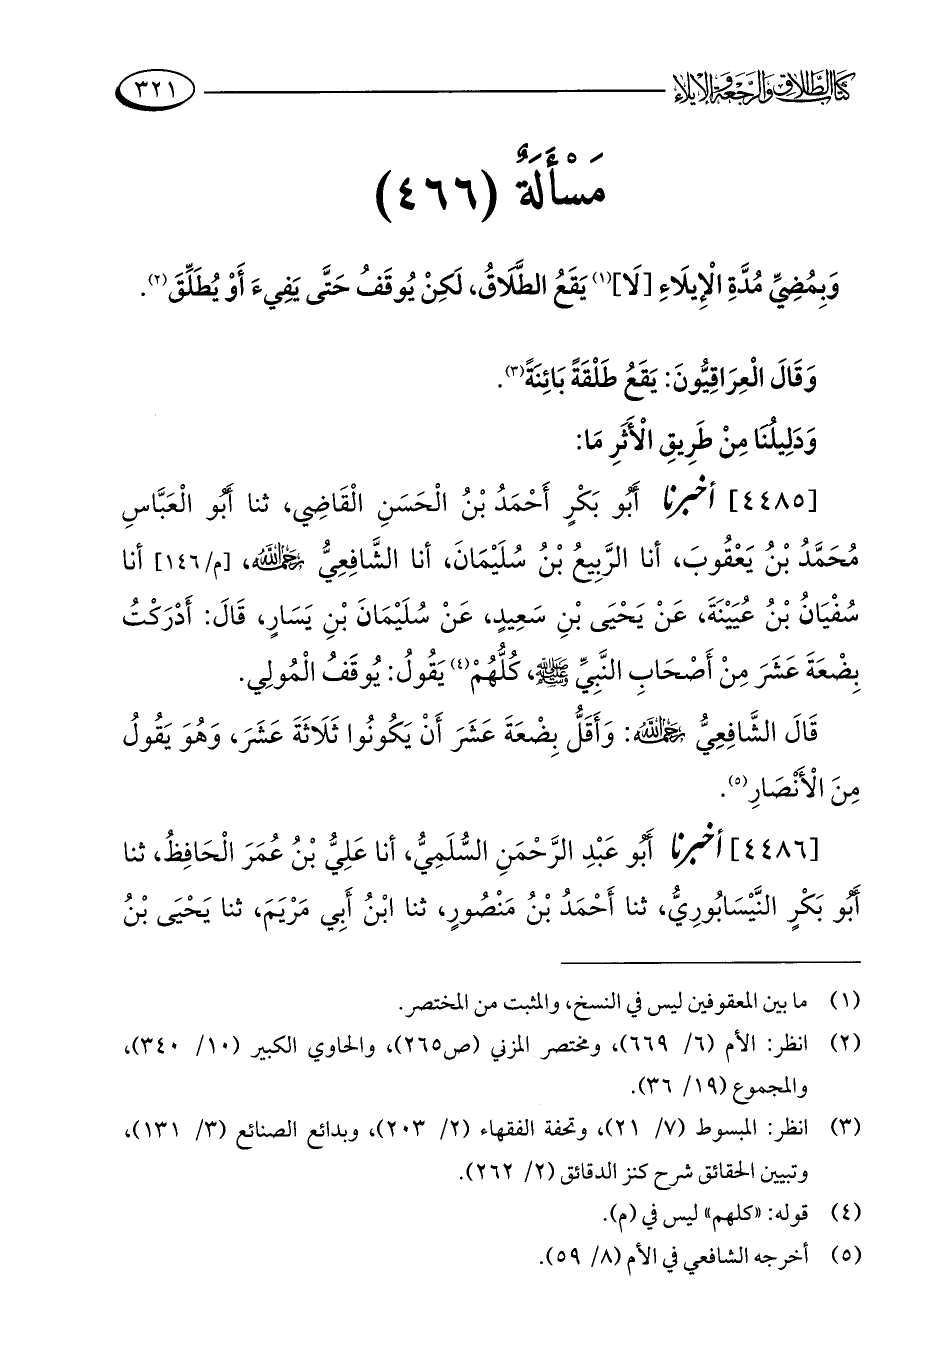 كتاب الطلاق والرجعة والإيلاء ٣٢١
مَسْأَلَةٌ (٤٦٦)
وَبِمُضِيِّ مُدَّةِ الْإِيلَاءِ [لَا](١) يَقَعُ الطَّلَاقُ، لَكِنْ يُوقَفُ حَتَّى يَفِيءَ أَوْ يُطَلِّقَ(٢).
وَقَالَ الْعِرَاقِيُّونَ: يَقَعُ طَلْقَةً بَائِنَةً(٣).
وَدَلِيلُنَا مِنْ طَرِيقِ الْأَثَرِ مَا:
[٤٤٨٥] أخبرنا أَبُو بَكْرٍ أَحْمَدُ بْنُ الْحَسَنِ الْقَاضِي، ثنا أَبُو الْعَبَّاسِ
مُحَمَّدُ بْنُ يَعْقُوبَ، أنا الرَّبِيعُ بْنُ سُلَيْمَانَ، أنا الشَّافِعِيُّ رَحِمَهُ اللَّهُ، [م/١٤٦] أنا
سُفْيَانُ بْنُ عُيَيْنَةَ، عَنْ يَحْيَى بْنِ سَعِيدٍ، عَنْ سُلَيْمَانَ بْنِ يَسَارٍ، قَالَ: أَدْرَكْتُ
بِضْعَةَ عَشَرَ مِنْ أَصْحَابِ النَّبِيِّ ﷺ، كُلُّهُمْ(٤) يَقُولُ: يُوقَفُ الْمُولِي.
قَالَ الشَّافِعِيُّ رَحِمَهُ اللَّهُ: وَأَقَلُّ بِضْعَةَ عَشَرَ أَنْ يَكُونُوا ثَلَاثَةَ عَشَرَ، وَهُوَ يَقُولُ
مِنَ الْأَنْصَارِ(٥).
[٤٤٨٦] أخبرنا أَبُو عَبْدِ الرَّحْمَنِ السُّلَمِيُّ، أنا عَلِيُّ بْنُ عُمَرَ الْحَافِظُ، ثنا
أَبُو بَكْرٍ النَّيْسَابُورِيُّ، ثنا أَحْمَدُ بْنُ مَنْصُورٍ، ثنا ابْنُ أَبِي مَرْيَمَ، ثنا يَحْيَى بْنُ
(١) ما بين المعقوفين ليس في النسخ، والمثبت من المختصر.
(٢) انظر: الأم (٦/ ٦٦٩)، ومختصر المزني (ص٢٦٥)، والحاوي الكبير (١٠/ ٣٤٠)،
والمجموع (١٩/ ٣٦).
(٣) انظر: المبسوط (٧/ ٢١)، وتحفة الفقهاء (٢/ ٢٠٣)، وبدائع الصنائع (٣/ ١٣١)،
وتبيين الحقائق شرح كنز الدقائق (٢/ ٢٦٢).
(٤) قوله: «كلهم» ليس في (م).
(٥) أخرجه الشافعي في الأم (٨/ ٥٩).